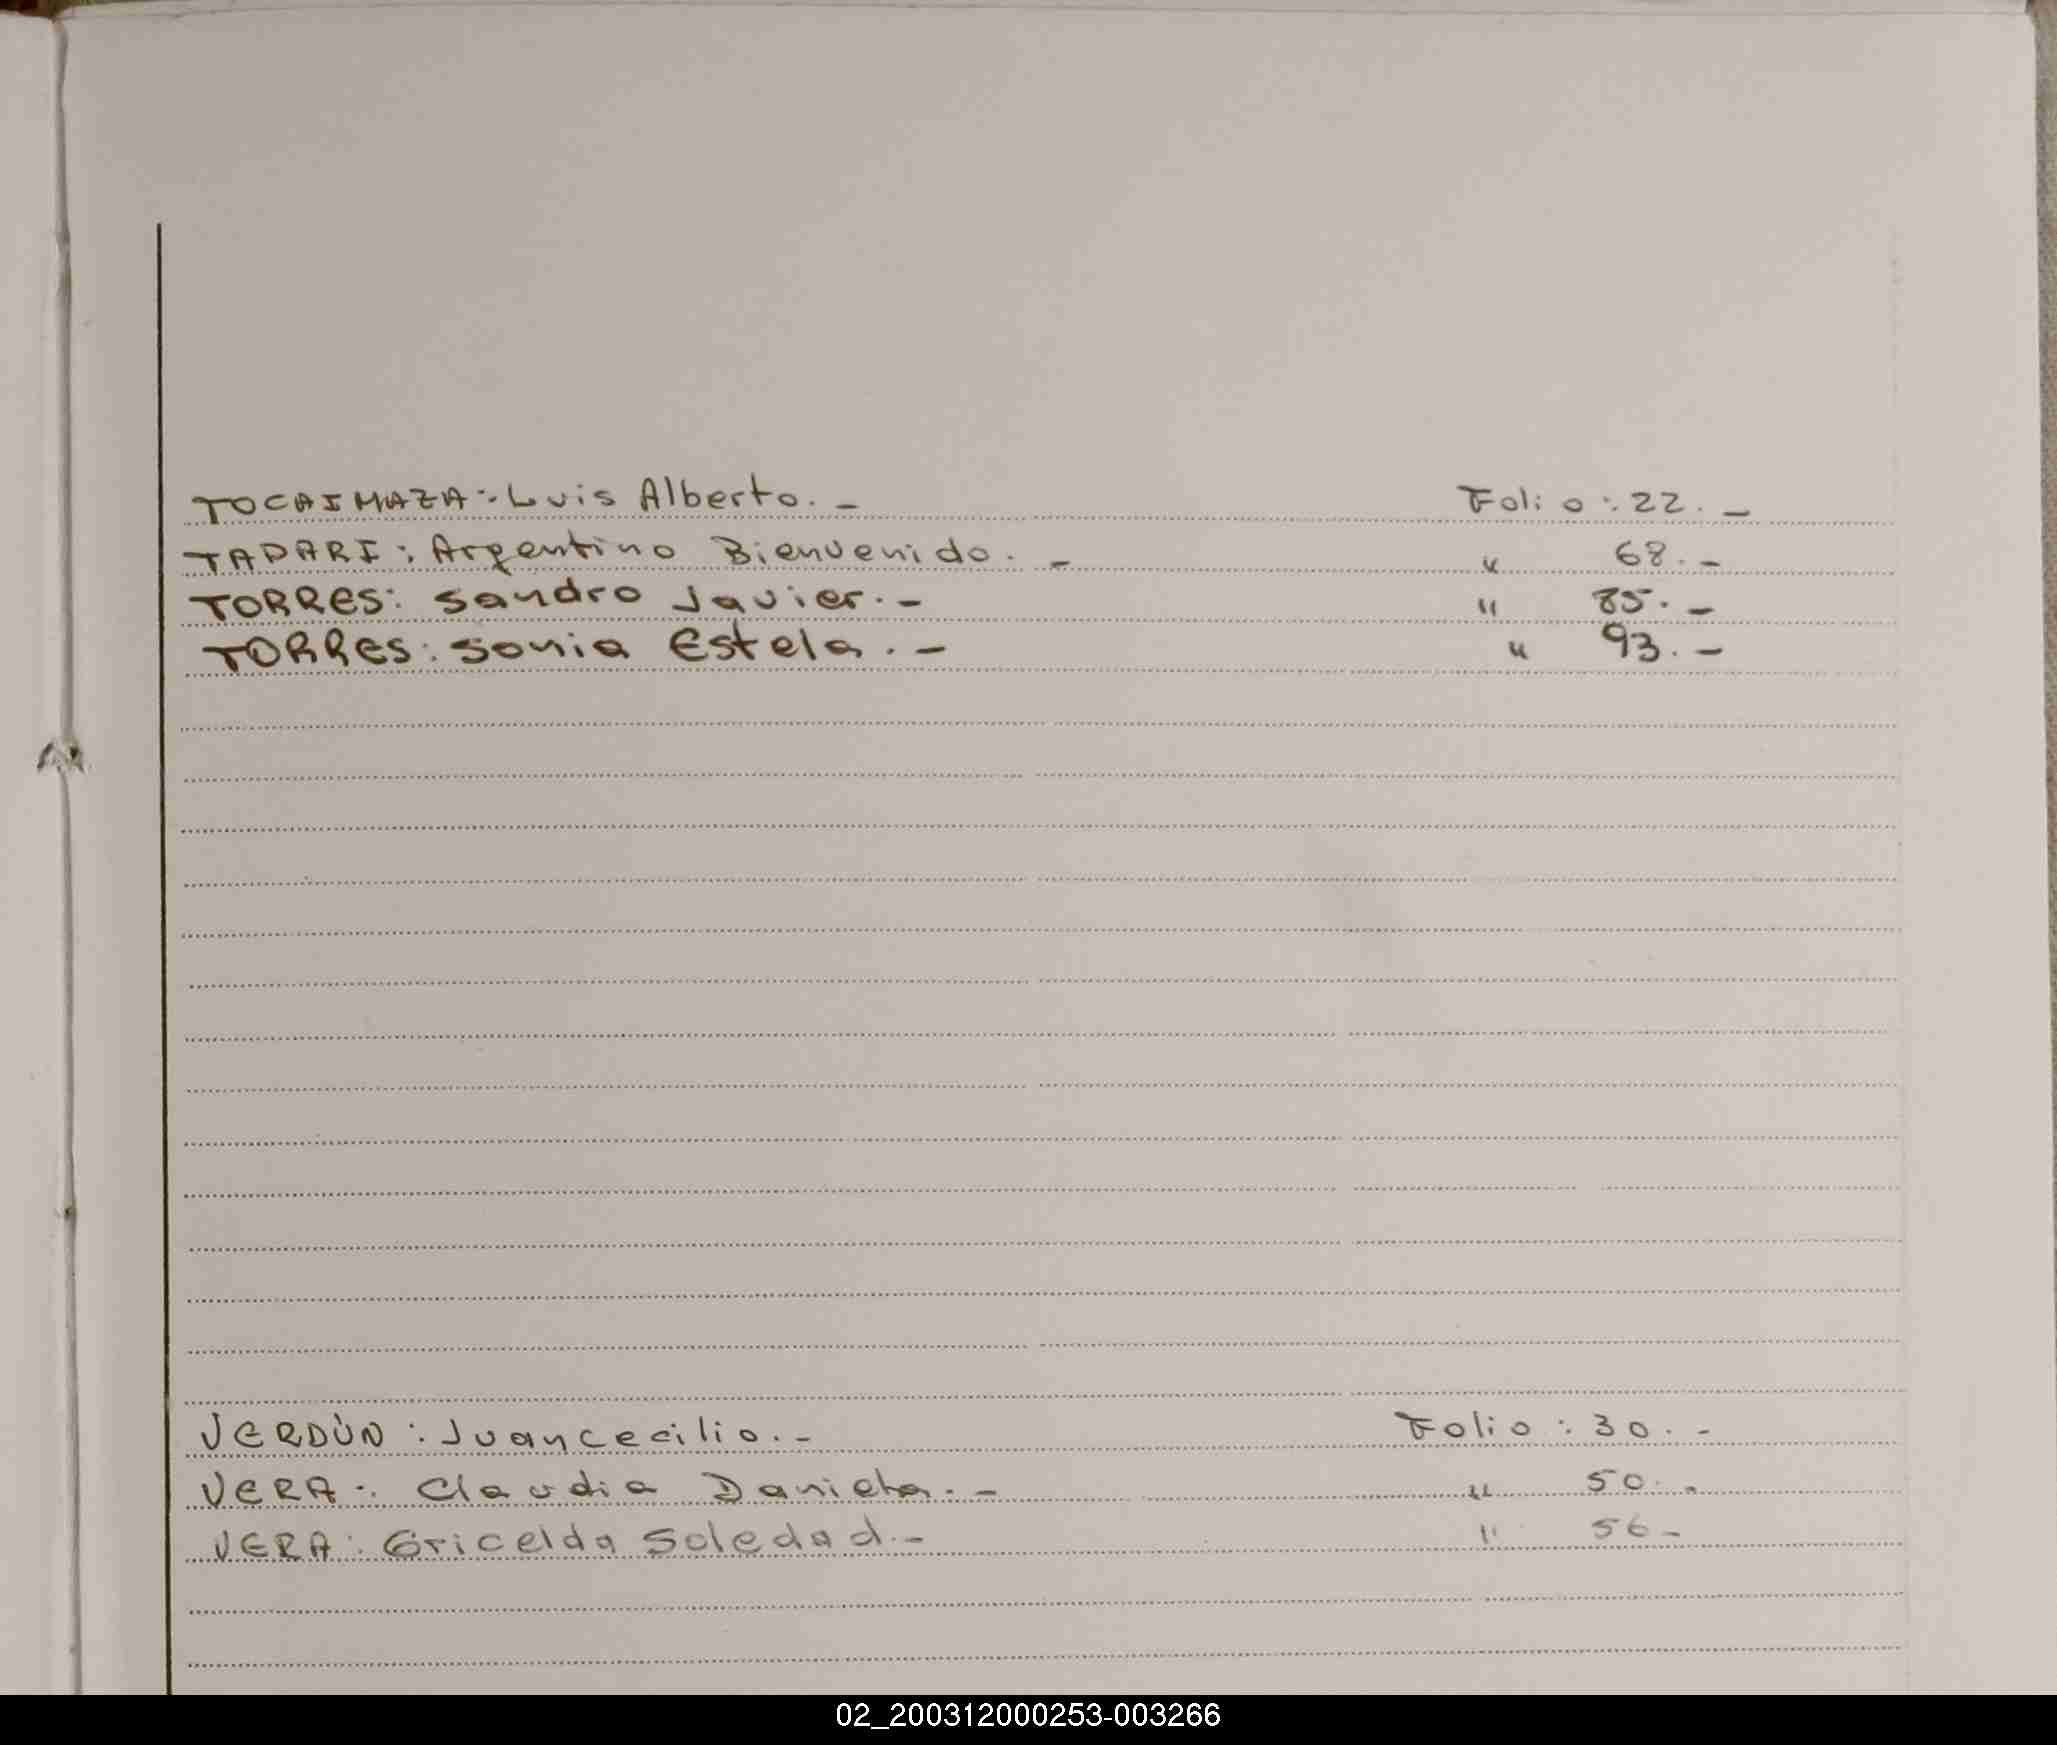 TOCAIMAZA: Luis Alberto. - Folio: 22. -
TADARI: Argentino Bienvenido. - " 68. -
TORRES: Sandro Javier. - " 85. -
TORRES: Sonia Estela. - " 93. -
VERDÙN: Juancecilio. - Folio: 30. -
VERA: Claudia Daniela. - " 50. -
VERA: Gricelda Soledad. - " 56 -
02_200312000253-003266